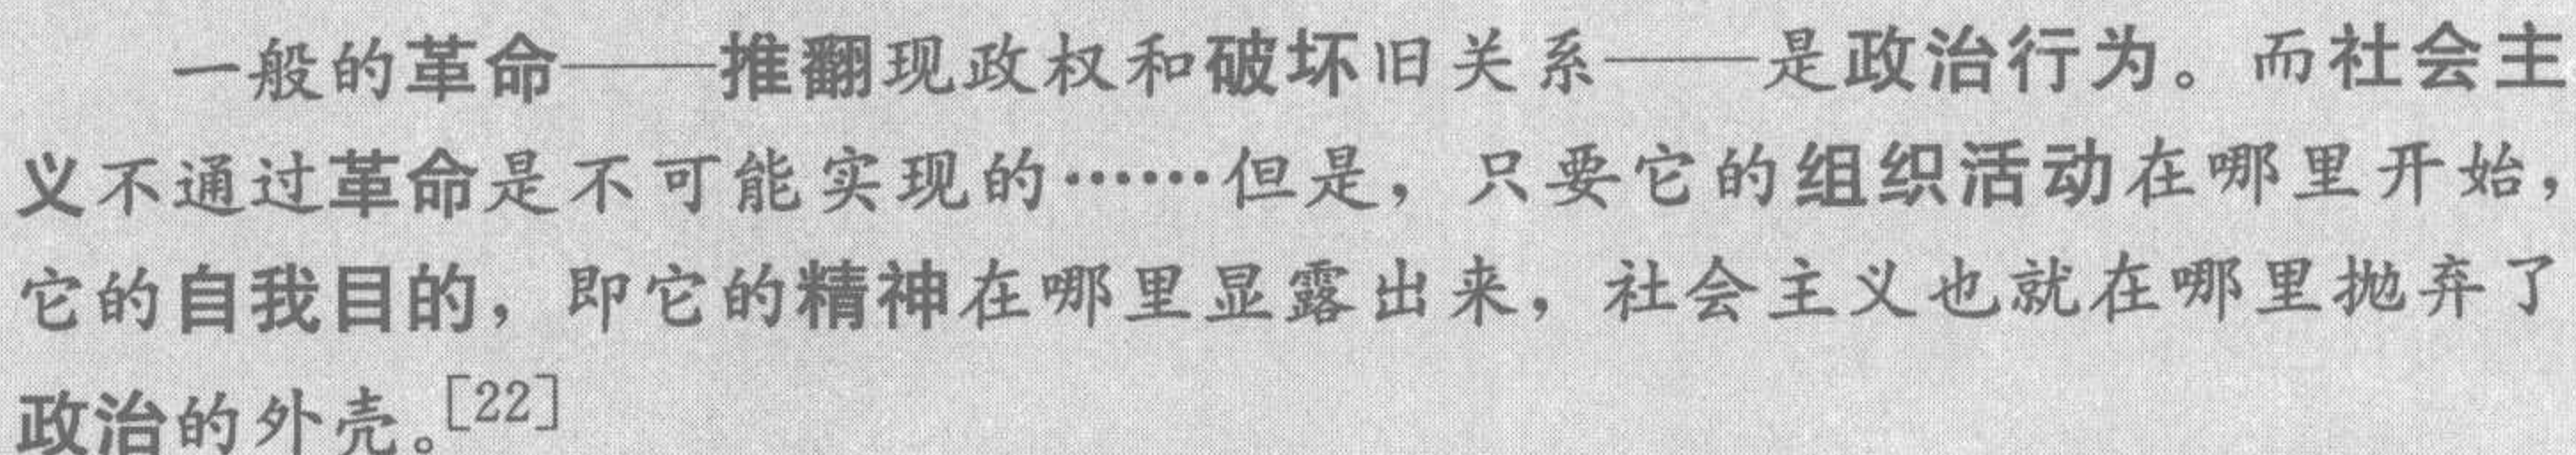 一般的革命——推翻现政权和破坏旧关系——是政治行为。而社会主
义不通过革命是不可能实现的……但是，只要它的组织活动在哪里开始，
它的自我目的，即它的精神在哪里显露出来，社会主义也就在哪里抛弃了
政治的外壳。[22]